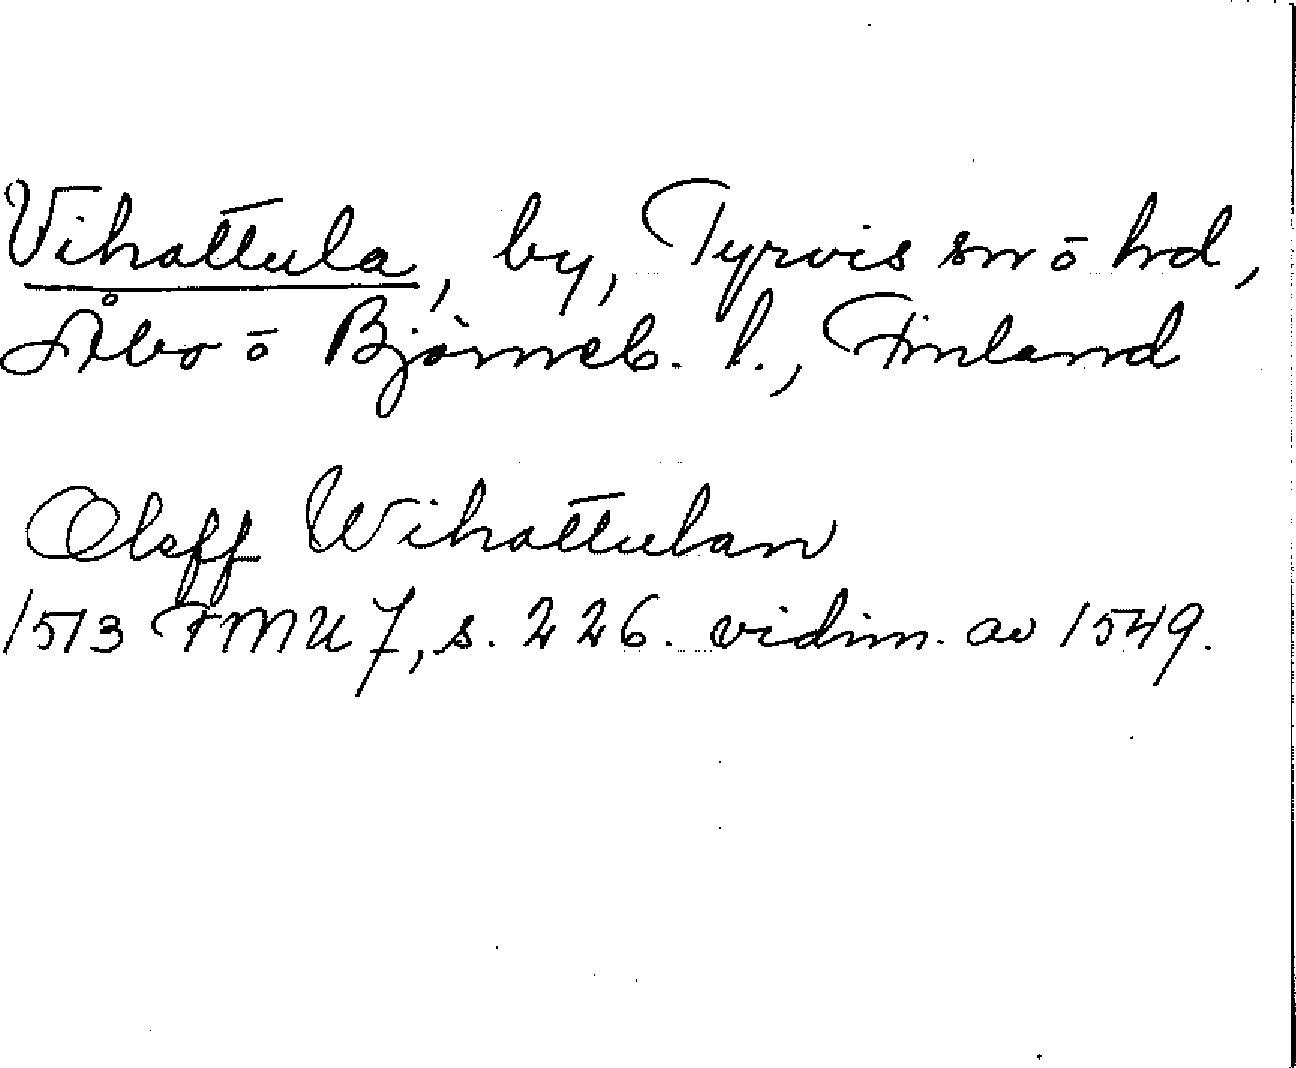 Vihattula, by, Tyrvis sn ō hd,
Åbo ō Björneb. l., Finland
Oleff Wihattulan
1513 FMU 7, s. 226. vidim. av 1549.